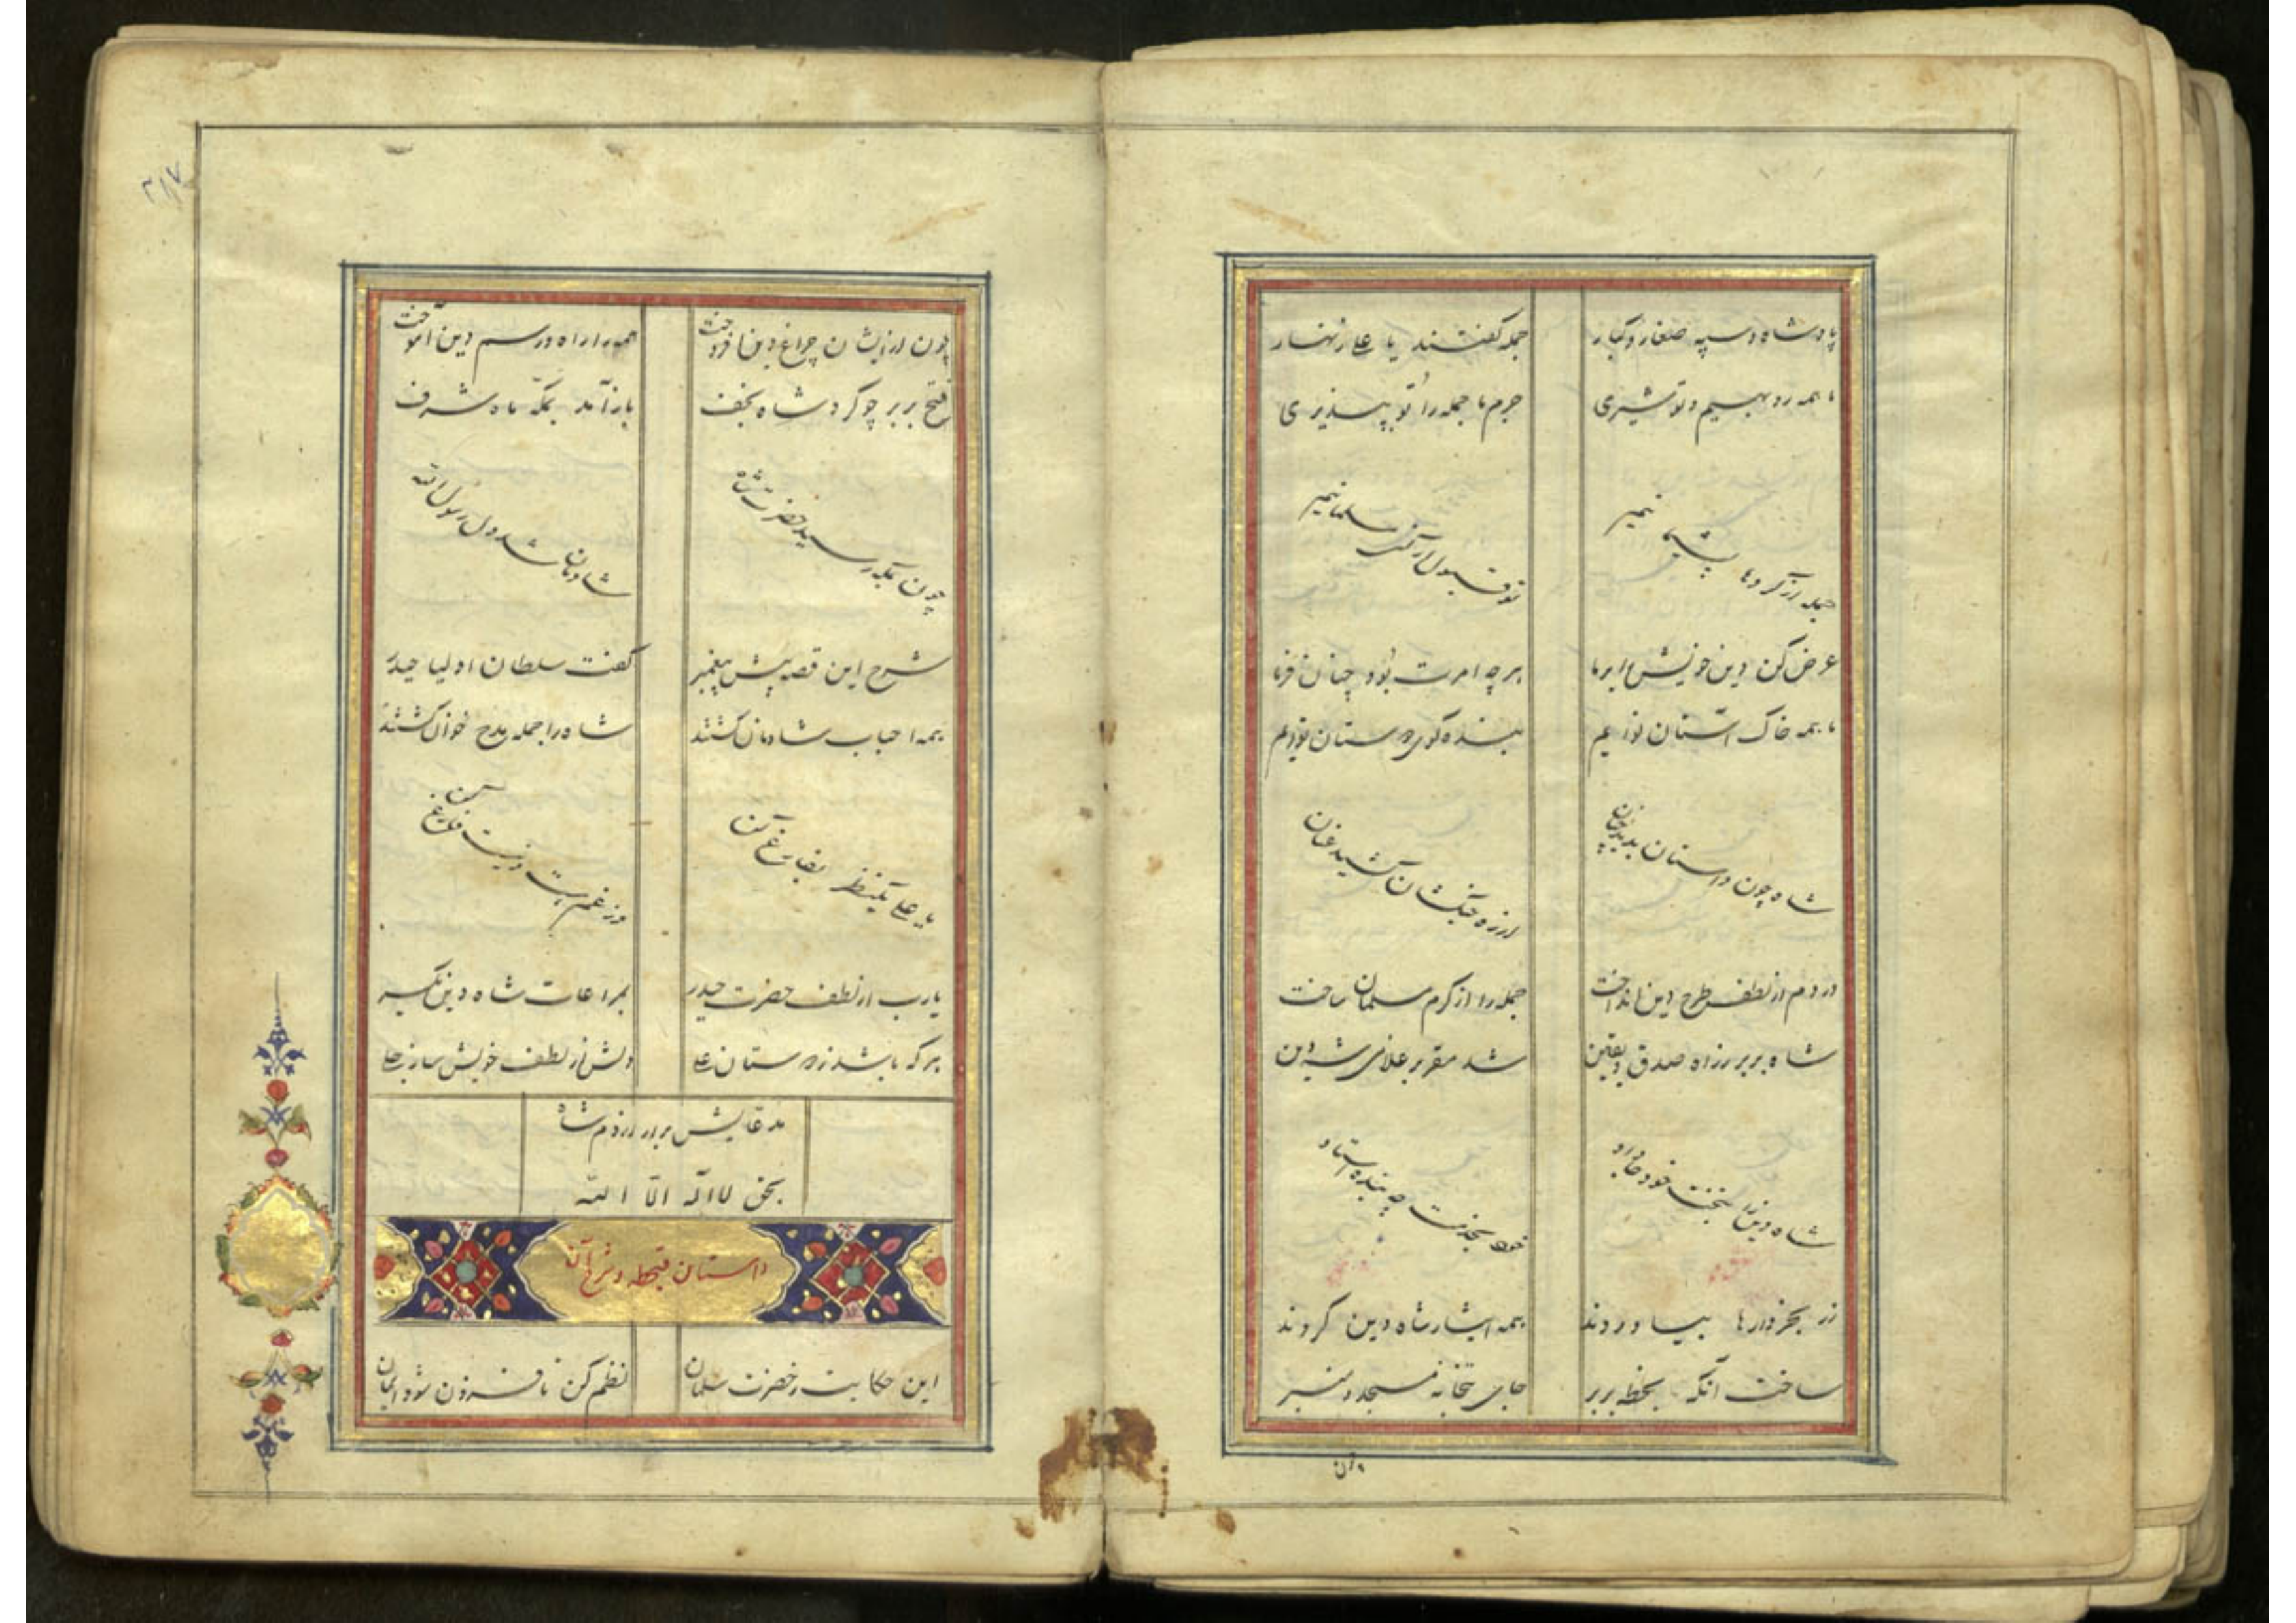 پادشاه و سپه صغار و کبار
جمله گفتند یا علی زنهار
ما همه روبهیم و تو شیری
جرم ما جمله را تو بپذیری
جمله از کردها پشیمانیم
تو قبول ار کنی مسلمانیم
عرض کن دین خویش را بر ما
هر چه امرت بود چنان فرما
ما همه خاک آستان توایم
بنده کوی دوستان توایم
شاه چون داستان بدید چنان
از ره جنگشان کشید عنان
در دم از لطف طرح دین انداخت
جمله را از کرم مسلمان ساخت
شاه بربر ز راه صدق و یقین
شد مقر بر غلامی شه دین
شاه دین را بتخت خود جا داد
خود بخدمت چو بنده استاد
زر بخروارها بیاوردند
همه ایثار شاه دین کردند
ساخت آنگه بخطه بربر
جای بتخانه مسجد و منبر
چون
۲۱۷
چون در ایشان چراغ دین افروخت
همه را راه و رسم دین آموخت
فتح بربر چو کرد شاه نجف
باز آمد بمکه ماه شرف
چون بمکه رسید حضرت شاه
شادمان شد دل رسول الله
شرح این قصه پیش پیغمبر
گفت سلطان اولیا حیدر
همه احباب شادمان گشتند
شاه را جمله مدح خوان گشتند
یا علی یکنظر بفارغ کن
وز غم هست و نیست فارغ کن
یارب از لطف حضرت حیدر
بمراعات شاه دین بنگر
هر که باشد ز دوستان علی
دلش از لطف خویش ساز جلی
مدعایش برار از دم شاه
بحق لا اله الا الله
داستان قتحطه و شرح آن
این حکایت ز حضرت سلمان
نظم کن تا فزون شود ایمان